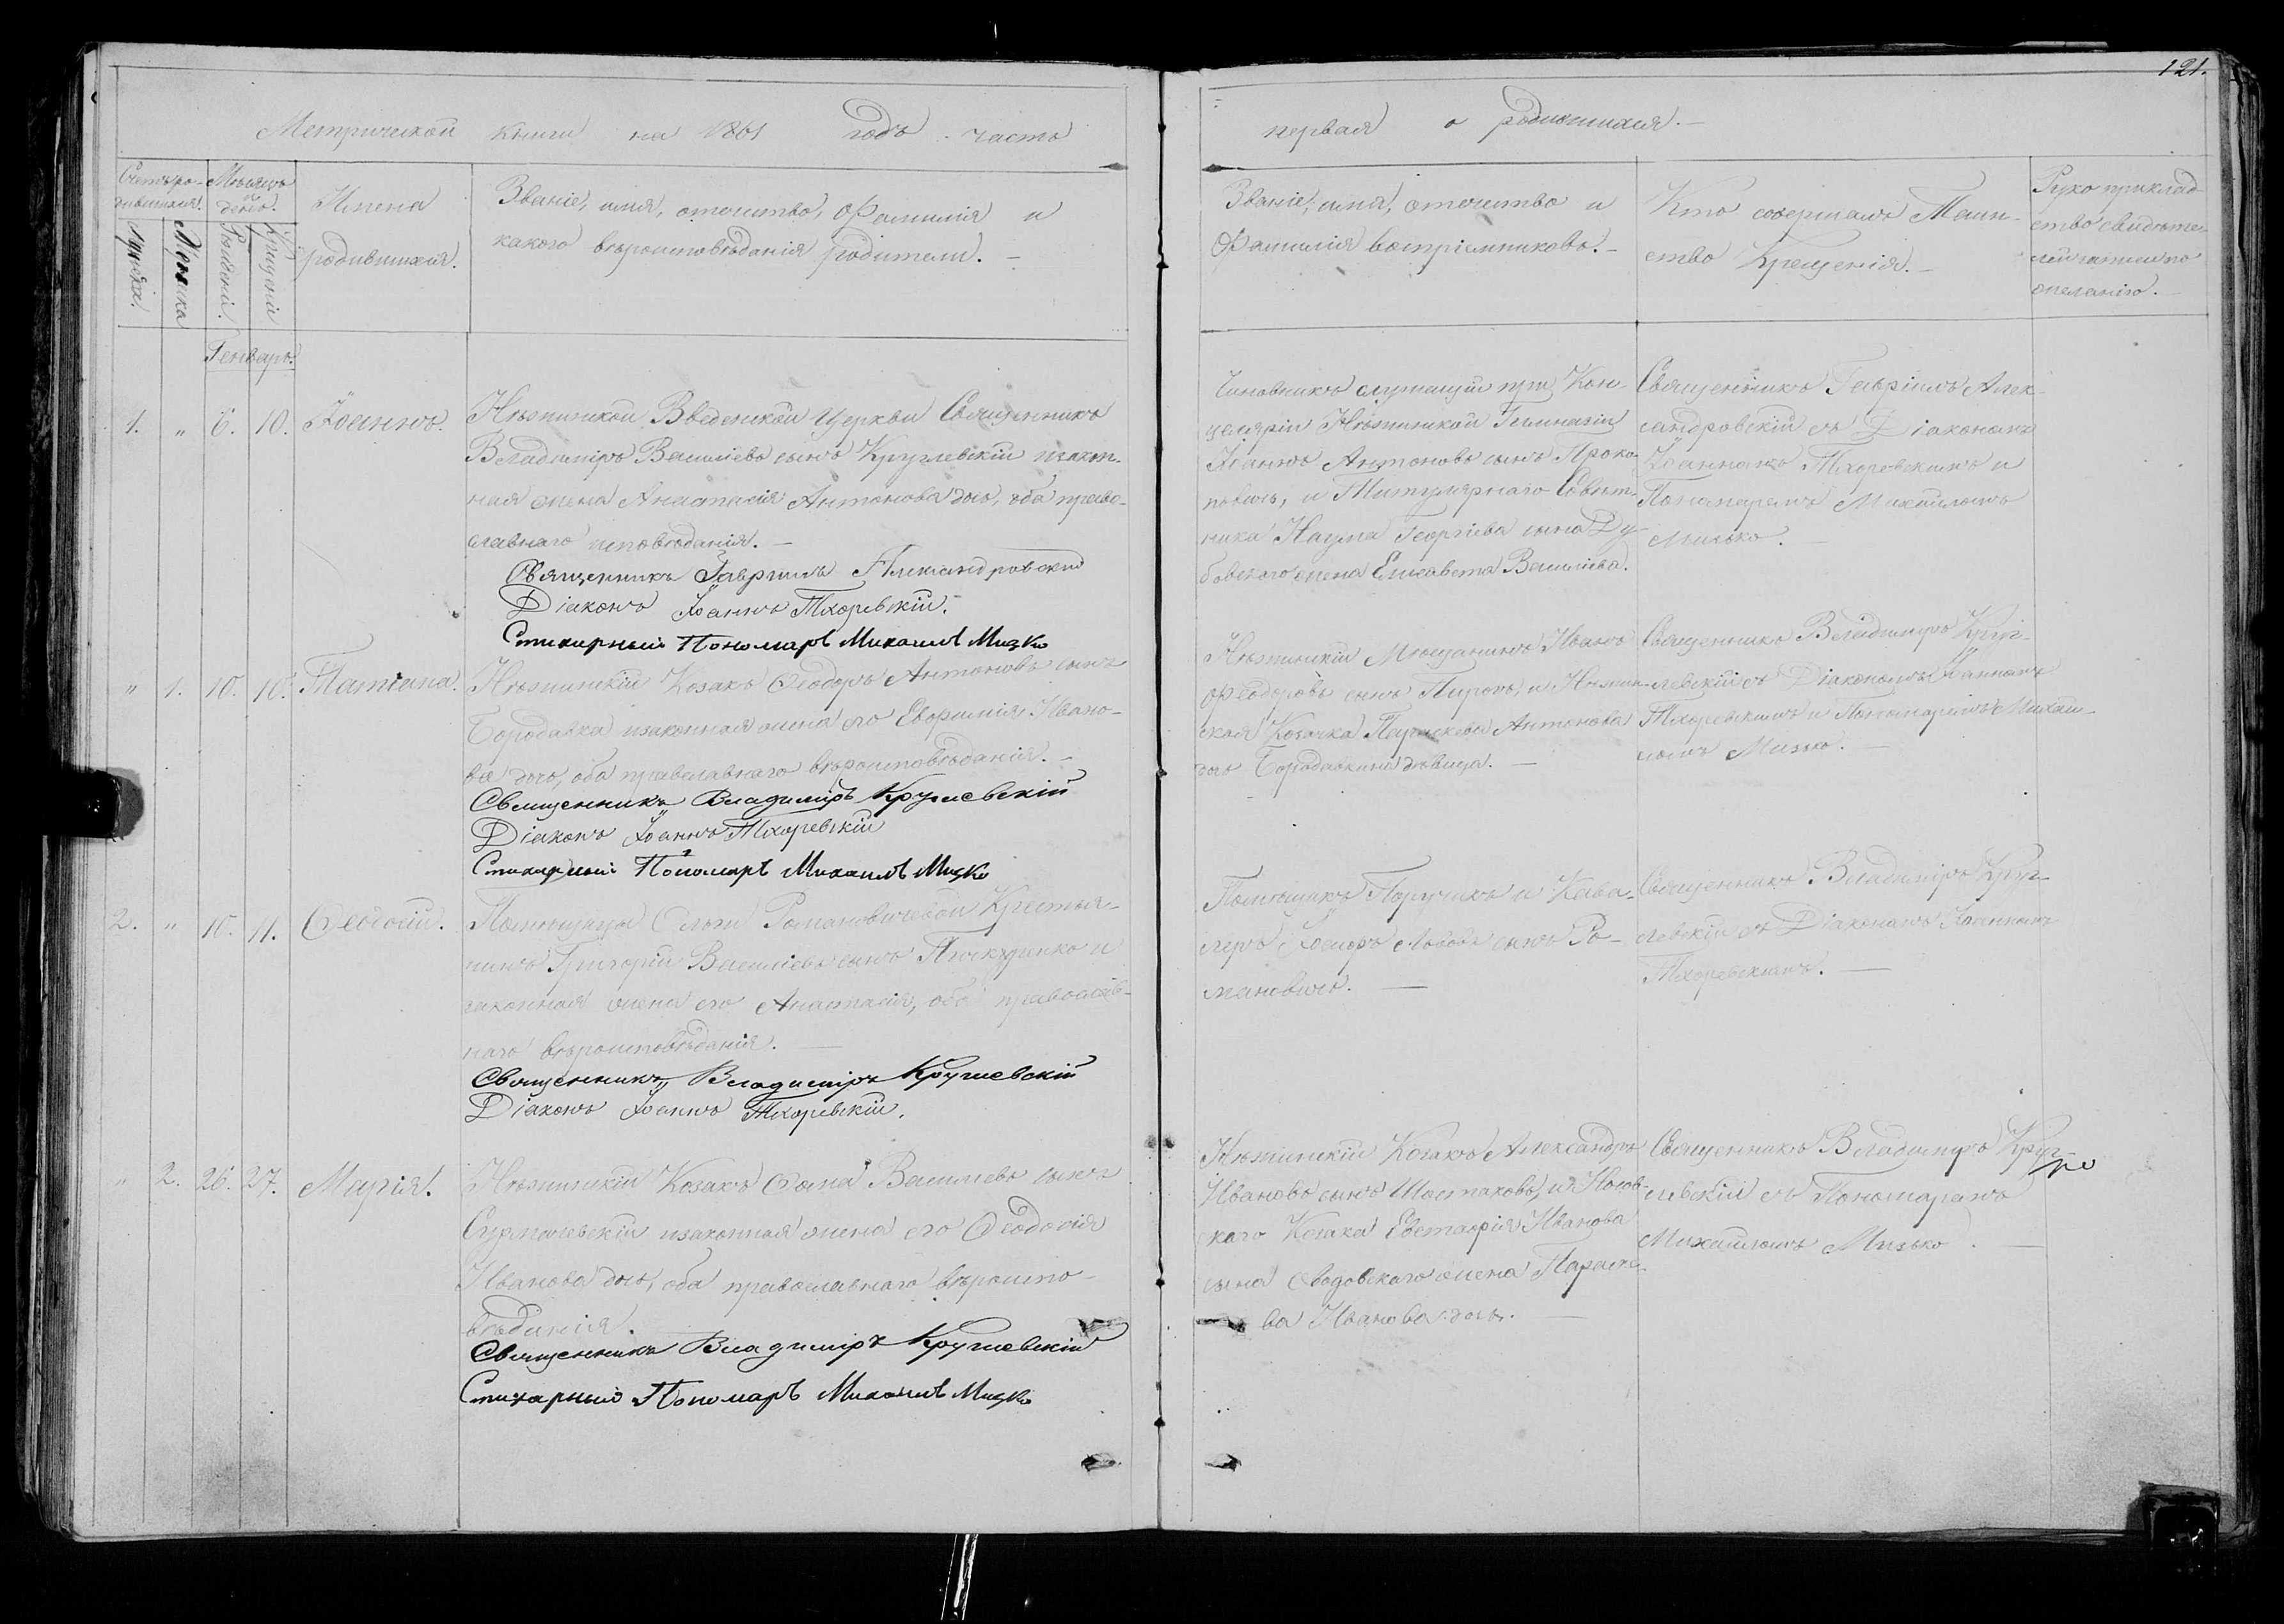 121.
Метрической книги на 1861 годъ часть
первая о родившихся.
Счетъ ро-
дившихся.
Мѣсяцъ
и
день.
Имена
родившихся.
Званіе, имя, отчество, Фамилія и
какого вѣроисповѣданія родители.
Мужеска
Женска
Рожденія.
Крещенія
Званіе, имя, отчество и
Фамилія воспріемниковъ.
Кто совершалъ Таин-
ство Крещенія.
Руко приклад
ство свидѣте-
лей записи по
желанію.
Генварь.
1. " 6. 10. Іоаннъ.
Нѣжинской Введенской Церкви Священникъ
Владиміръ Василіевъ сынъ Круглевскій и закон-
ная жена Анастасія Антонова дочь, оба право-
славнаго исповѣданія.
Священникъ Гавріилъ Александровскій
Діаконъ Іоаннъ Тхоревскій.
Стихарный Пономарь Михаилъ Мизко
Чиновникъ служащій при Кан-
целяріи Нѣжинской Гимназіи
Іоаннъ Антоновъ сынъ Проко-
повичъ, и Титулярнаго Совѣт-
ника Наума Георгіева сына Ду-
бовского жена Елисавета Василіева.
Священникъ Гавріилъ Алек-
сандровскій съ Діакономъ
Іоанномъ Тхоревскимъ и
Пономаремъ Михаиломъ
Мизько.
" 1. 10. 10. Татіана.
Нѣжинскій Козакъ Ѳеодоръ Антоновъ сынъ
Бородавка и законная жена его Евфимія Ивано-
ва дочь, оба православнаго вѣроисповѣданія.
Священникъ Владиміръ Круглевскій
Діаконъ Іоаннъ Тхоревскій
Стихарный Пономарь Михаилъ Мизко
Нѣжинскій Мѣщанинъ Иванъ
Ѳеодоровъ сынъ Пирогъ, и Нѣжин-
ская Козачка Параскева Антонова
дочь Бородавкина дѣвица.
Священникъ Владиміръ Круг-
левскій съ Діакономъ Іоанномъ
Тхоревскимъ и Пономаремъ Михаи-
ломъ Мизько.
2. " 10. 11. Ѳеодосій.
Помѣщицы Ольги Романовичевой Крестья-
нинъ Григорій Василіевъ сынъ и
законная жена его Анастасія, оба православ-
наго вѣроисповѣданія.
Священникъ Владиміръ Круглевскій
Діаконъ Іоаннъ Тхоревскій.
Помѣщикъ Поручикъ и Кава-
леръ Львовъ сынъ Ро-
мановичъ.
Священникъ Владиміръ Круг-
левскій съ Діакономъ Іоанномъ
Тхоревскимъ.
" 2. 26. 27. Марія.
Нѣжинскій Козакъ Ѳома Василіевъ сынъ
и законная жена его Ѳеодосія
Иванова дочь, оба православнаго вѣроиспо-
вѣданія.
Священникъ Владиміръ Круглевскій
Стихарный Пономарь Михаилъ Мизко
Нѣжинскій Козакъ Александръ
Ивановъ сынъ Шостаковъ, и Носов-
скаго Козака Евстафія Иванова
сына жена Параске-
ва Иванова дочь.
Священникъ Владиміръ Круг-
левскій съ Пономаремъ
Михаиломъ Мизько.